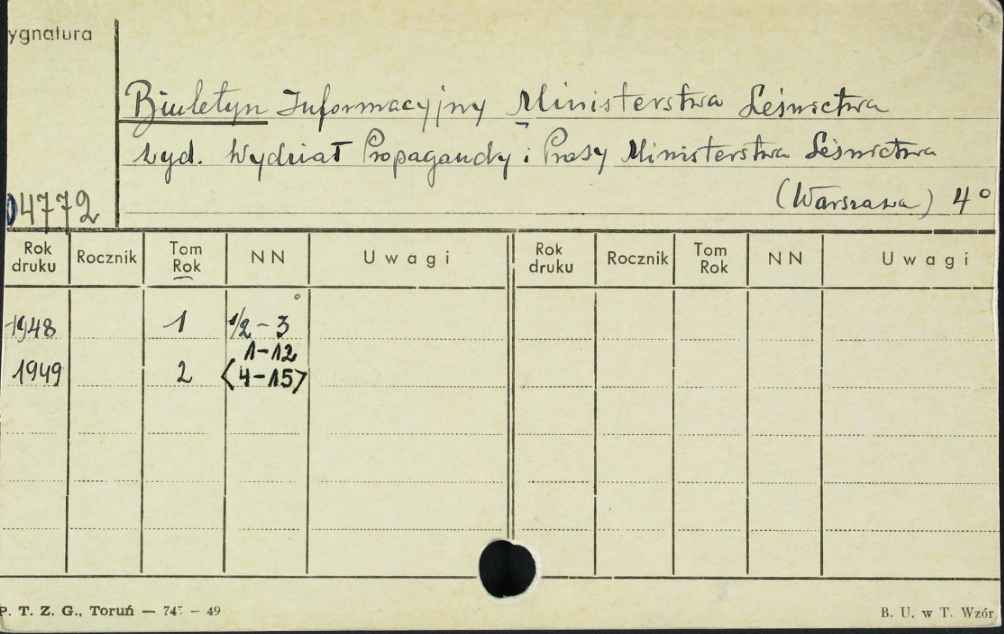 ygnatura
Biuletyn Informacyjny Ministerstwa Leśnictwa
wyd. Wydział Propagandy i Prasy Ministerstwa Leśnictwa
(Warszawa) 4°
04772
Rok druku Rocznik Tom Rok NN Uwagi Rok druku Rocznik Tom Rok NN Uwagi
1948 1 1/2-3
1-12
1949 2 <4-15>
P. T. Z. G., Toruń — 49
B. U. w T. Wzór